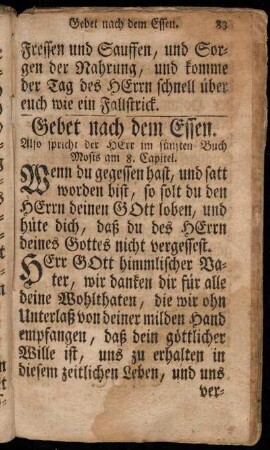 Gebet nach dem Essen. 83
Fressen und Sauffen, und Sor-
gen der Nahrung, und komme
der Tag des HErrn schnell über
euch wie ein Fallstrick.
Gebet nach dem Essen.
Also spricht der HErr im fünften Buch
Mosis am 8. Capitel.
Wenn du gegessen hast, und satt
worden bist, so solt du den
HErrn deinen GOtt loben, und
hüte dich, daß du des HErrn
deines Gottes nicht vergessest.
HErr GOtt himmlischer Va-
ter, wir dancken dir für alle
deine Wohlthaten, die wir ohn
Unterlaß von deiner milden Hand
empfangen, daß dein göttlicher
Wille ist, uns zu erhalten in
diesem zeitlichen Leben, und uns
ver-